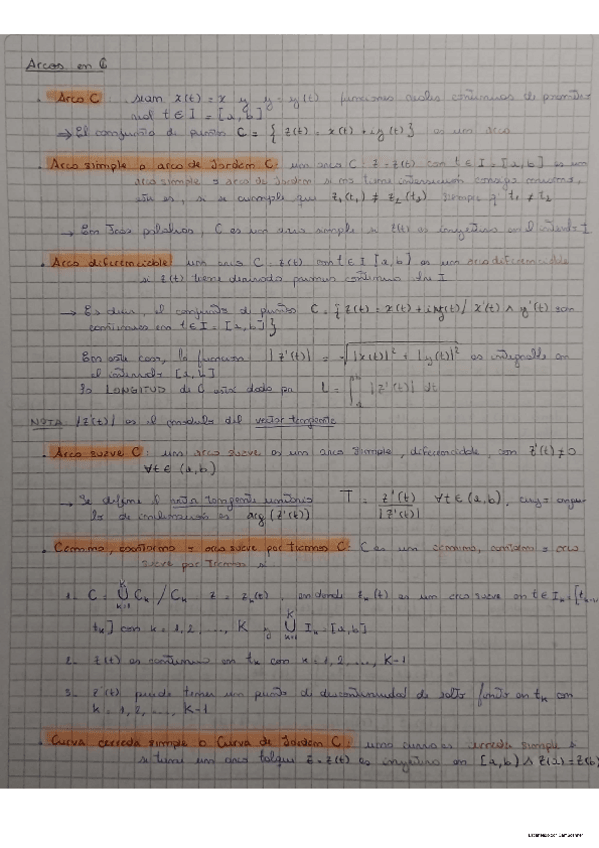 Arcos en ℂ
• Arco C: sean x(t) = x y y = y(t) funciones reales continuas de
real t ∈ I = [a, b]
→ El conjunto de puntos C = { z(t) = x(t) + iy(t) } es un arco
• Arco simple o arco de Jordan C: un arco C: z = z(t) con t ∈ I = [a, b] es un
arco simple o arco de Jordan si no tiene intersección consigo mismo,
esto es, si se cumple que z₁(t₁) ≠ z₂(t₂) siempre q' t₁ ≠ t₂
→ En otras palabras, C es un arco simple si z(t) es inyectiva en el intervalo I
• Arco diferenciable: un arco C: z = z(t) con t ∈ I [a, b] es un arco diferenciable
si z(t) tiene derivada primera continua en I
→ Es decir, el conjunto de puntos C = { z(t) = x(t) + iy(t) / x'(t) ∧ y'(t) son
continuas en t ∈ I = [a, b] }
En este caso, la función |z'(t)| = √ |x(t)|² + |y(t)|² es integrable en
el intervalo [a, b]
La LONGITUD de C está dada por L = ∫ |z'(t)| dt
NOTA: |z'(t)| es el módulo del vector tangente
• Arco suave C: un arco suave es un arco simple, diferenciable, con z'(t) ≠ 0
∀t ∈ (a, b)
→ Se define el tangente unitario T = z'(t) / |z'(t)| ∀t ∈ (a, b), cuyo ángulo
de inclinación es arg (z'(t))
• Camino, contorno o arco suave por tramos C: C es un camino, contorno o arco
suave por tramos si
1. C = ⋃ Cₖ / Cₖ z = zₖ(t), en donde zₖ(t) es un arco suave en t ∈ Iₖ = [tₖ₋₁,
tₖ] con k = 1, 2, ..., K y ⋃ Iₖ = [a, b]
2. z(t) es continua en tₖ con k = 1, 2, ..., K-1
3. z'(t) puede tener un punto de discontinuidad de salto finito en tₖ con
k = 1, 2, ..., K-1
• Curva cerrada simple o Curva de Jordan C: una curva es cerrada simple
si tiene un arco tal que z = z(t) es inyectiva en [a, b) ∧ z(a) = z(b)